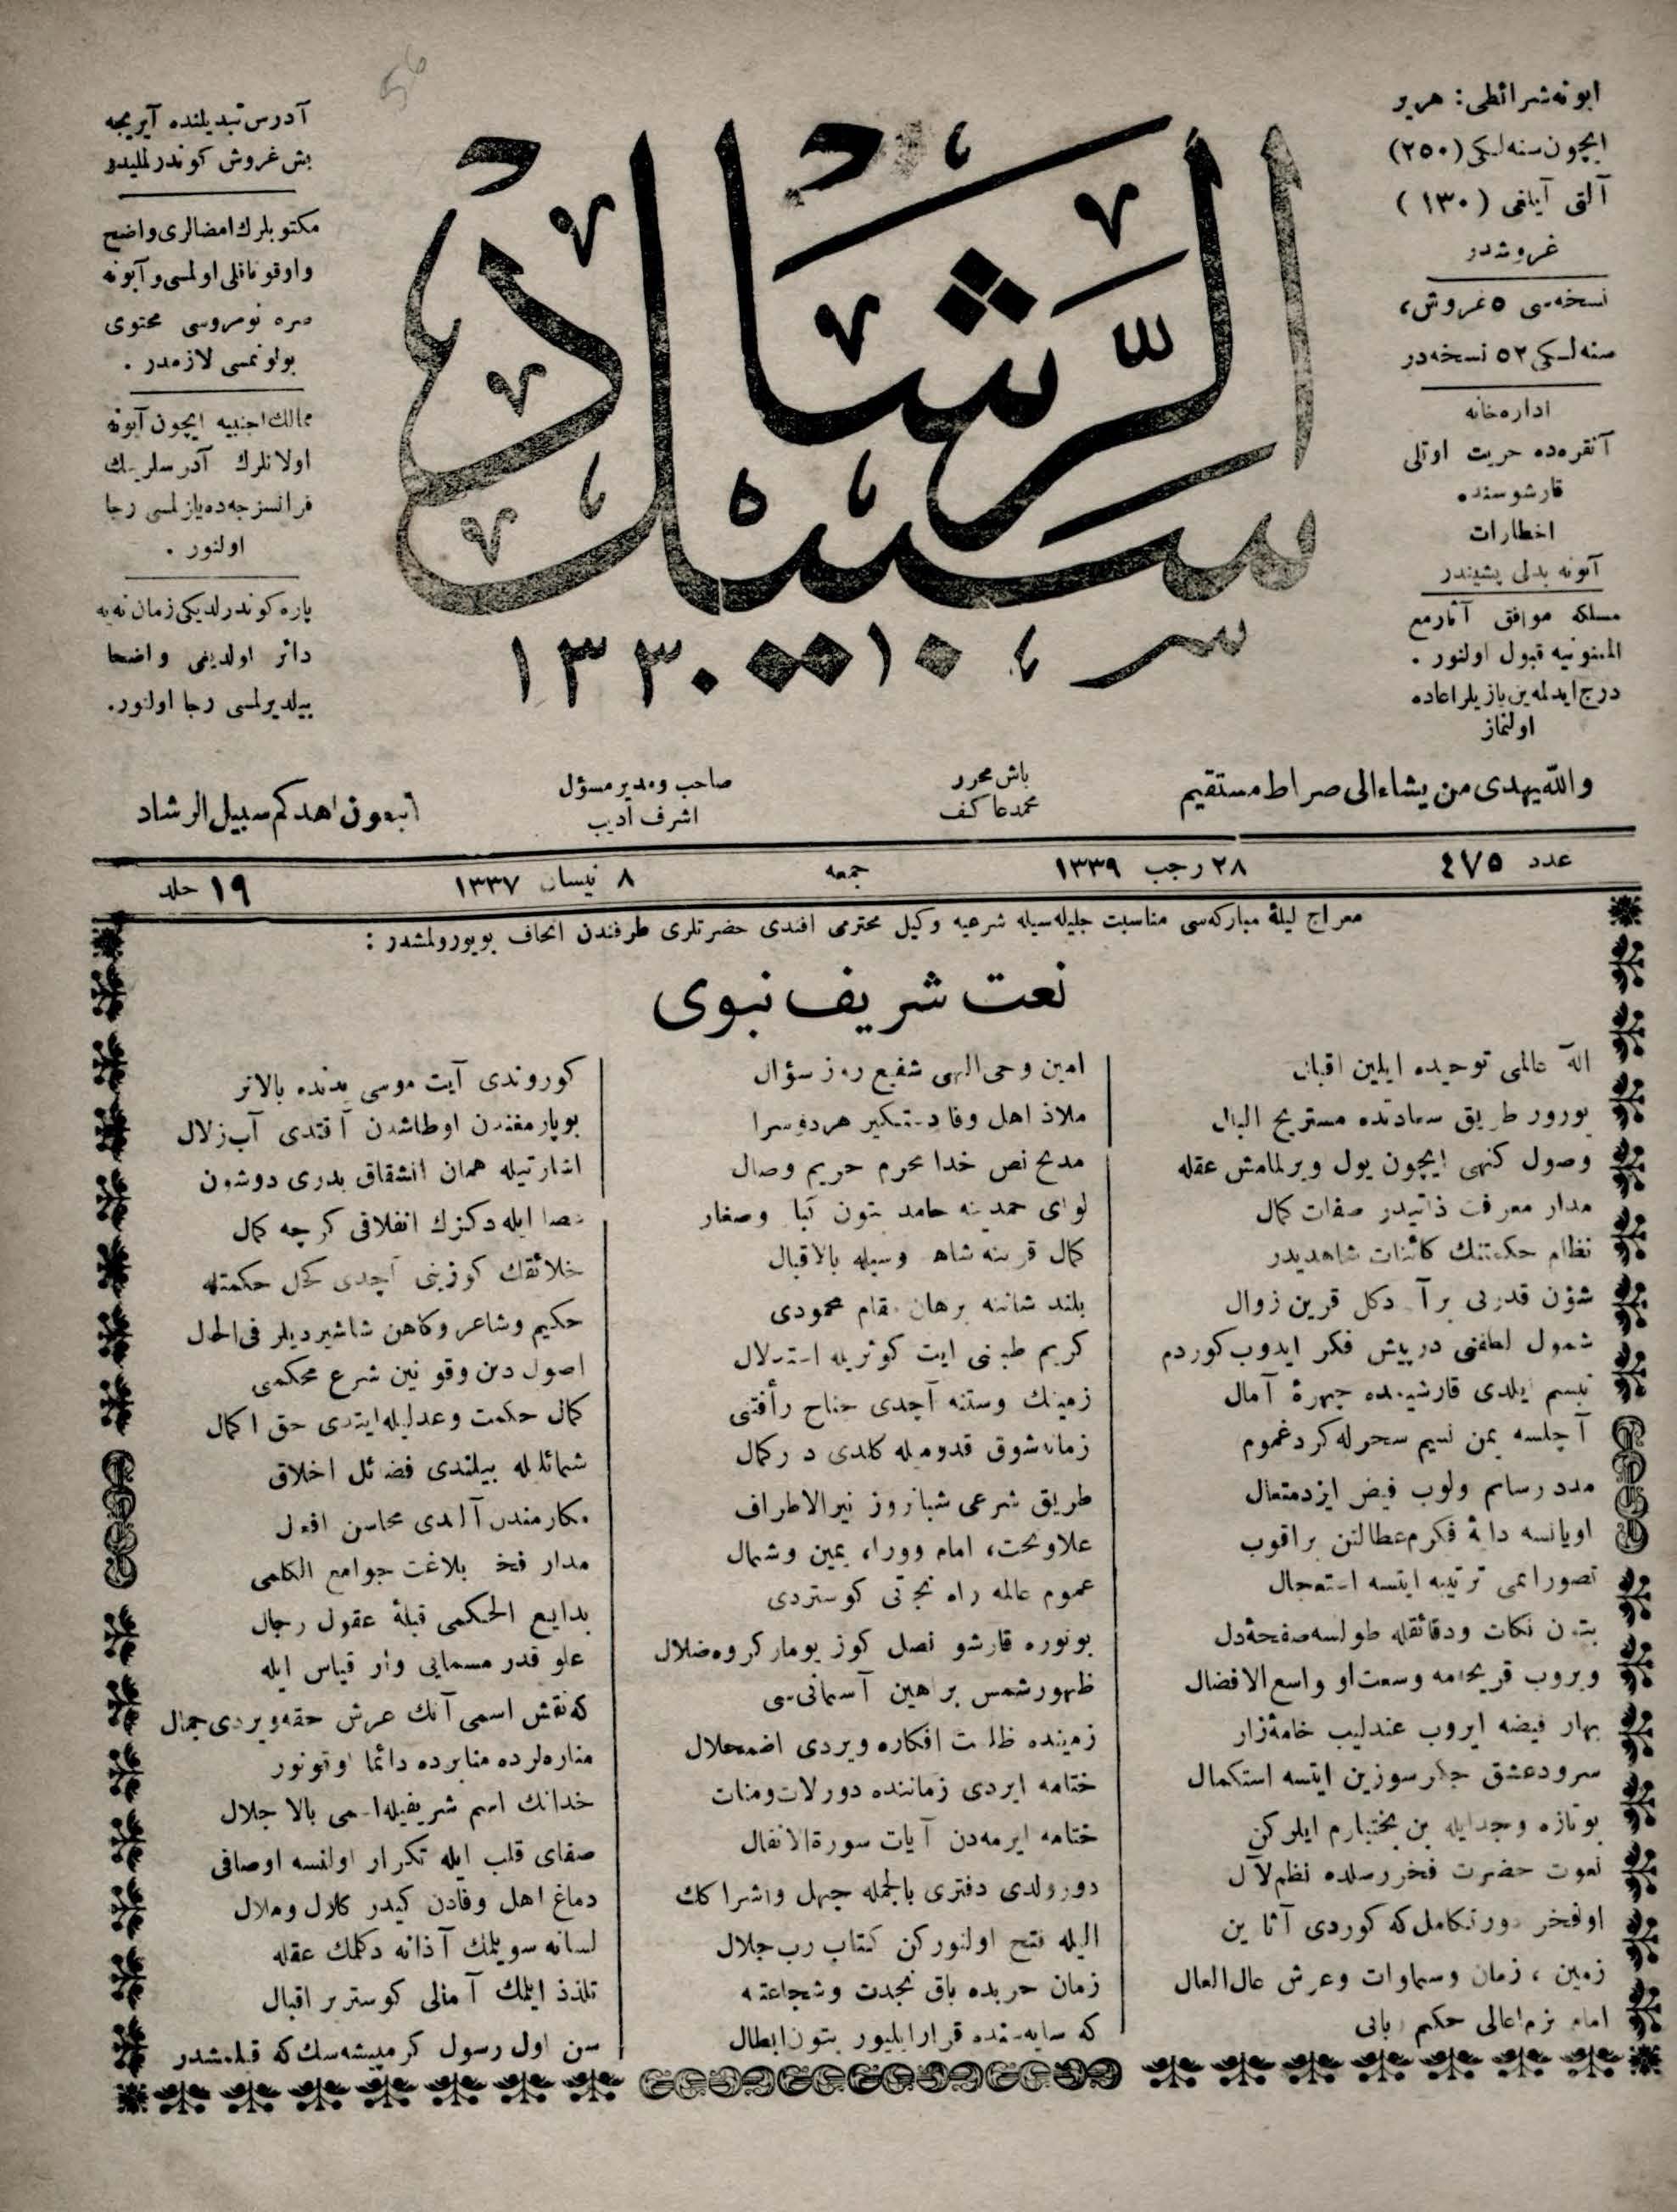 ابونه شرائطی : هر یر
ایچون سنه‌لکی (۲۵۰)
آلتی آیلغی (۱۳۰)
غروشدر
نسخه‌سی ۵ غروش،
سنه‌لکی ۵۲ نسخه‌در
اداره‌خانه
آنقره‌ده حریت اوتلی
قارشوسنده
اخطارات
آبونه بدلی پشیندر
مسلکه موافق آثار مع
الممنونیه قبول اولنور .
درج ایدلمه‌ین یازیلر اعاده
اولنماز
سبیل الرشاد
۱۳۳۰
آدرس تبدیلنده آیریجه
بش غروش کوندرلملیدر
مکتوبلرك امضالری واضح
واوقوناقلی اولمسی و آبونه
صره نومروسی محتوی
بولونمسی لازمدر .
ممالك اجنبیه ایچون آبونه
اولانلرك آدرسلرینك
فرانسزجه‌ده یازلمسی رجا
اولنور .
پاره کوندرلدیکی زمان نه‌یه
دائر اولدیغی واضحا
بیلدیرلمسی رجا اولنور.
والله یهدی من یشاء الی صراط مستقیم
باش محرر
محمد عاکف
صاحب ومدیر مسؤل
اشرف ادیب
اتبعون اهدکم سبیل الرشاد
عدد ٤٧٥
۲۸ رجب ۱۳۳۹
جمعه
۸ نیسان ۱۳۳۷
۱۹ جلد
معراج لیلهٔ مبارکه‌سی مناسبت جلیله‌سیله شرعیه وکیل محترمی افندی حضرتلری طرفندن اتحاف بویورولمشدر :
نعت شریف نبوی
اله عالمی توحیده ایلین اقبال
یورور طریق سعادتده مستریح البال
وصول کنهی ایچون یول ویرلمامش عقله
مدار معرفت ذاتیدر صفات کمال
نظام حکمتنك کائنات شاهدیدر
شؤن قدرتی برآن دکل قرین زوال
شمول لطفنی درپیش فکر ایدوب کوردم
تبسم ایلدی قارشیمده چهرهٔ آمال
آچلسه یمن نسیم سحرله کرد غموم
مدد رسانم اولوب فیض ایزد متعال
اویانسه فکرم عطالتن براقوب
تصوراتمی ترتیبه ایتسه استعجال
بتون نکات ودقائقله طولسه صفحهٔ دل
ویروب قریحه‌مه وسعت او واسع الافضال
بهار فیضه ایروب عندلیب خامهٔ زار
سرود عشق جکرسوزین ایتسه استکمال
بوتازه وجدایله بن بختیارم ایلرکن
نعوت حضرت فخر رسلده نظم لآل
اوفخر دور تکامل که کوردی آثارین
زمین ، زمان وسماوات وعرش عال العال
امام بزم اعالی حکیم ربانی
امین وحی الهی شفیع روز سؤال
ملاذ اهل وفا دستکیر هر دوسرا
مدیح نص خدا محرم حریم وصال
لوای حمدینه حامد بتون کبار وصغار
کمال قربنه شاهد وسیله بالاقبال
بلند شاننه برهان مقام محمودی
کریم طبعنی آیت کوثریله استدلال
زمینك وستنه آچدی جناح رأفتنی
زمانه شوق قدومیله کلدی در کمال
طریق شرعی شبانروز نیر الاطراف
علاوتحت، امام وورا، یمین وشمال
عموم عالمه راه نجاتی کوستردی
بونوره قارشو نصل کوز یومار کروه ضلال
ظهور شمس براهین آسمانی‌سی
زمینده ظلمت افکاره ویردی اضمحلال
ختامه ایردی زماننده دور لات ومنات
ختامه ایرمه‌دن آیات سورة الانفال
دورولدی دفتری بالجمله جهل واشراکك
الیله فتح اولنورکن کتاب رب جلال
زمان حربده باق نجدت وشجاعتنه
که سایه‌سنده قرار ایلیور بتون ابطال
کوروندی آیت موسی یدنده بالاتر
بوپارمغندن اوطاشدن آقتدی آب زلال
اشارتیله همان انشقاق بدری دوشون
عصا ایله دکزك انفلاقی کرچه کمال
خلائقك کوزینی آچدی کحل حکمتله
حکیم وشاعر وکاهن شاشیردیلر فی الحال
اصول دین وقوانین شرع محکمی
کمال حکمت وعدلیله ایتدی حق اکمال
شمائلیله بیلندی فضائل اخلاق
مکارمندن آلدی محاسن افعال
مدار فخر بلاغت جوامع الکلمی
بدایع الحکمی قبلهٔ عقول رجال
علو قدر مسمایی وار قیاس ایله
که نقش اسمی آنك عرش حقه ویردی جمال
مناره‌لرده منابرده دائما اوقونور
خدانك اسم شریفیله اسمی بالاجلال
صفای قلب ایله تکرار اولنسه اوصافی
دماغ اهل وفادن کیدر کلال وملال
لسانه سویلمك آذانه دکلمك عقله
تلذذ ایلمك آمالی کوستریر اقبال
سن اول رسول کرم‌پیشه‌سك که قیلمشدر